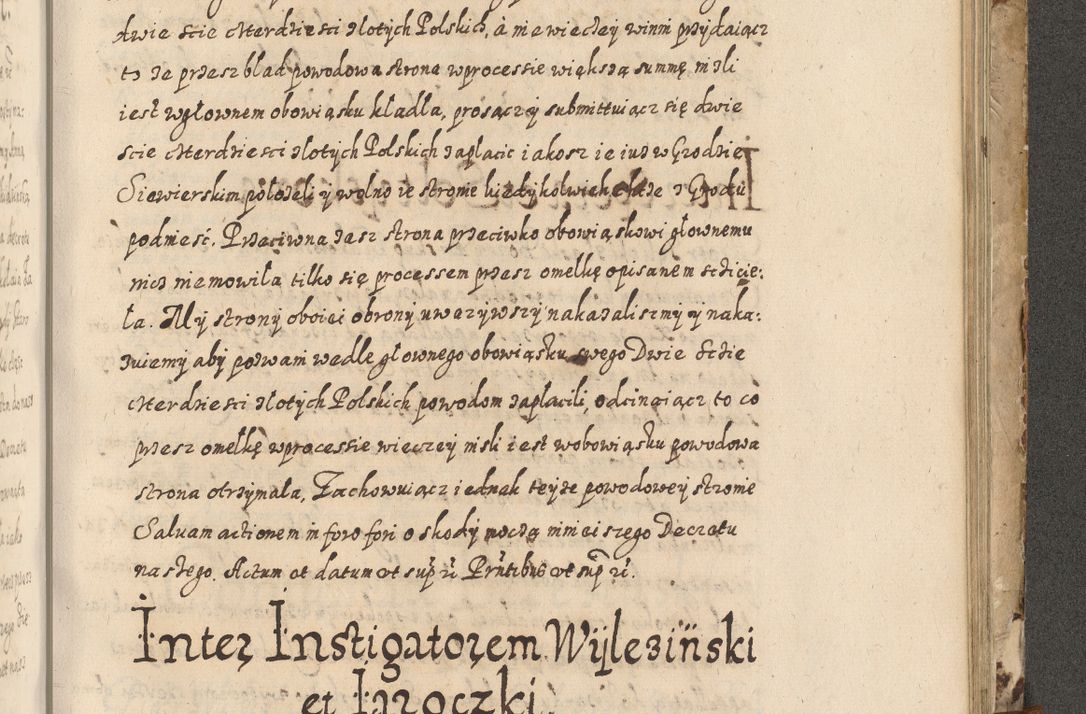 dwie scie czterdziesci złotych Polskich, à nie wieczey winni przydaiącz
to że przesz bład powodowa strona wprocessie większą summę nizli
iest wgłownem obowiąsku kładła, prosączÿ submittuiącz się dwie
scie czterdziesci złotych Polskich zaplacic iakosz ie iusz w Grodzie
Siewierskim położeli ÿ wolno ie stronie kiedykolwiek chcze z Grodu
podniesć. Przeciwna zasz strona przeciwko obowiąskowi głownemu
nicz niemowiła tilko się processem przesz omełkę opisanem sczicie:
ła. Mÿ stronÿ oboiei obronÿ uwazÿwszÿ nakazalismÿ ÿ naka:
zuiemÿ abÿ pozwani wedle głownego obowiąsku swego Dwie Sczie
czterdziesci złotych Polskich powodom zapłacili, odcinaiącz to co
przesz omełkę wprocessie wieczeÿ nisli iest wobowiąsku powodowa
strona otrzÿmała, Zachowuiącz iednak teÿże powodoweÿ stronie
Salvam actionem in foro fori o skodÿ moczą ninieiszego Decretu
naszego. Actum et datum ut sup̃ rã Prñtibus ut sup̃ rã.
Inter Instigatorem Wÿlezïński
et Jaroczki.